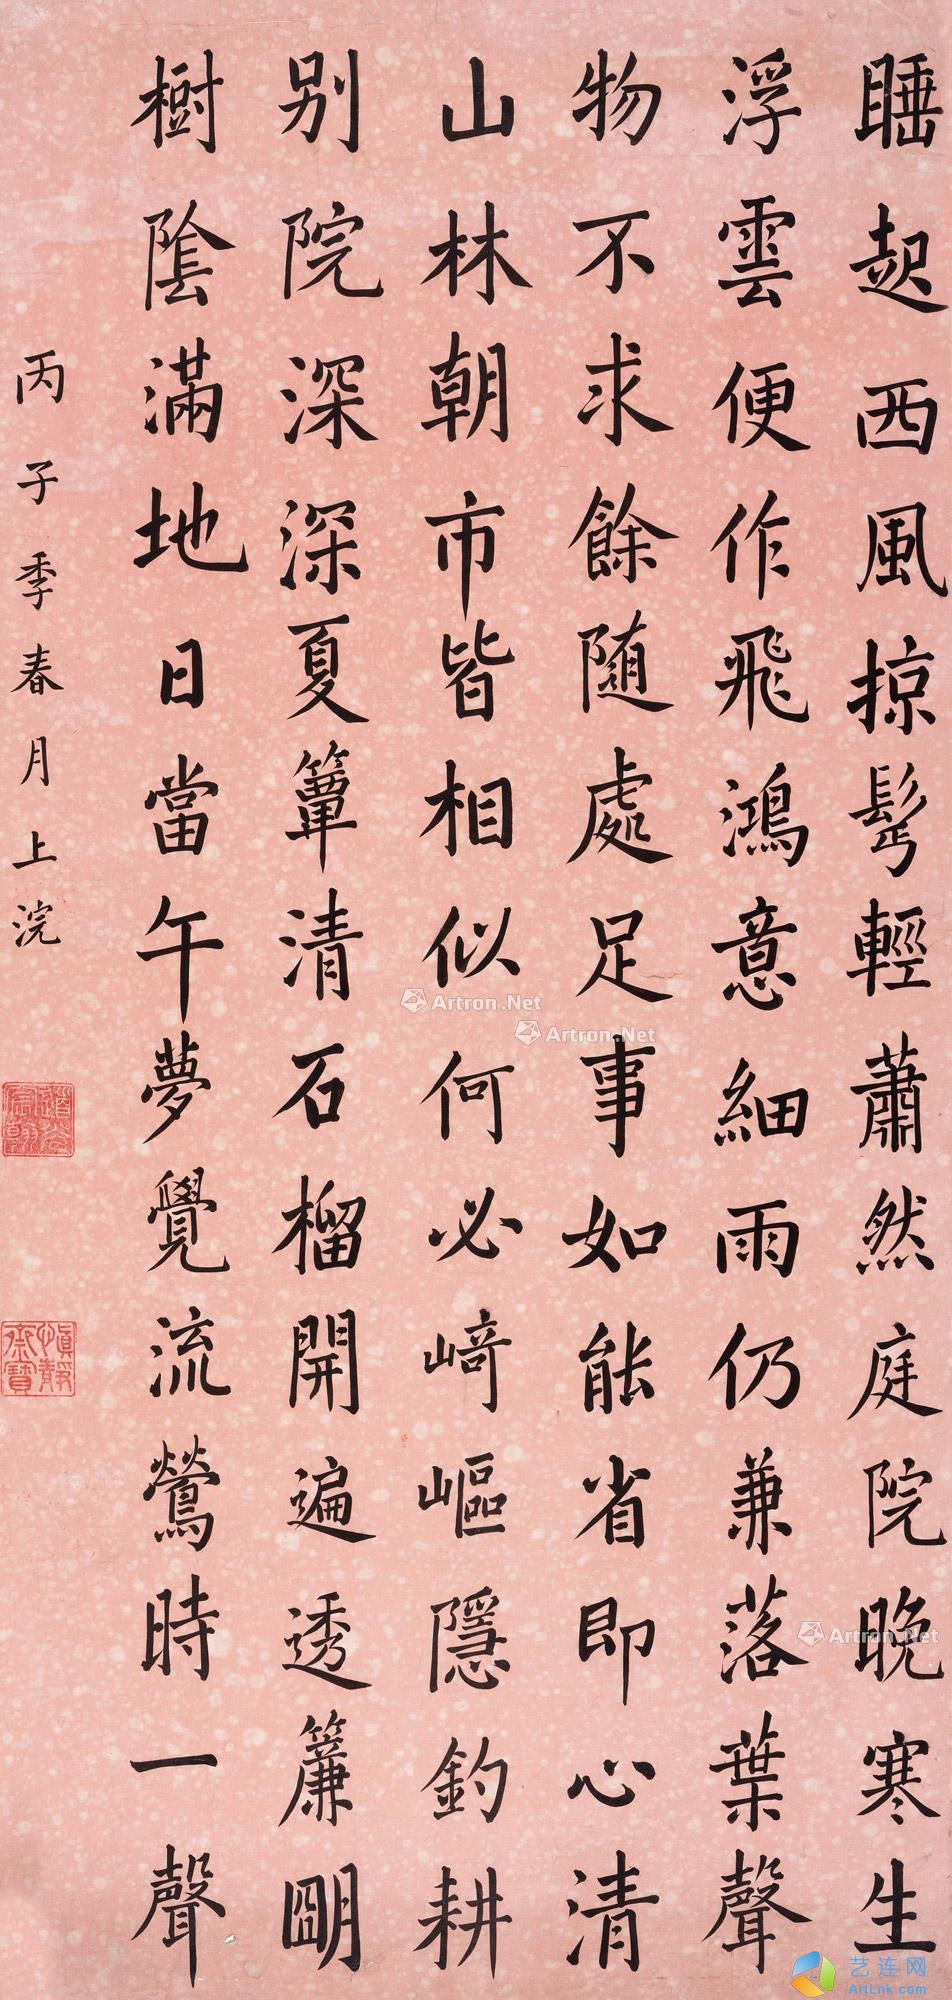 睡起西風掠鬂輕蕭然庭院晚寒生
浮雲便作飛鴻意細雨仍兼落葉聲
物不求餘随處足事如能省即心清
山林朝市皆相似何必崎嶇隱釣耕
别院深深夏簟清石榴開遍透簾明
樹陰滿地日當午夢覺流鶯時一聲
丙子季春月上浣
道光宸翰
慎靜齋寶
Artron.Net
Artron.Net
Artron.Net
艺连网
ArtLnk.com